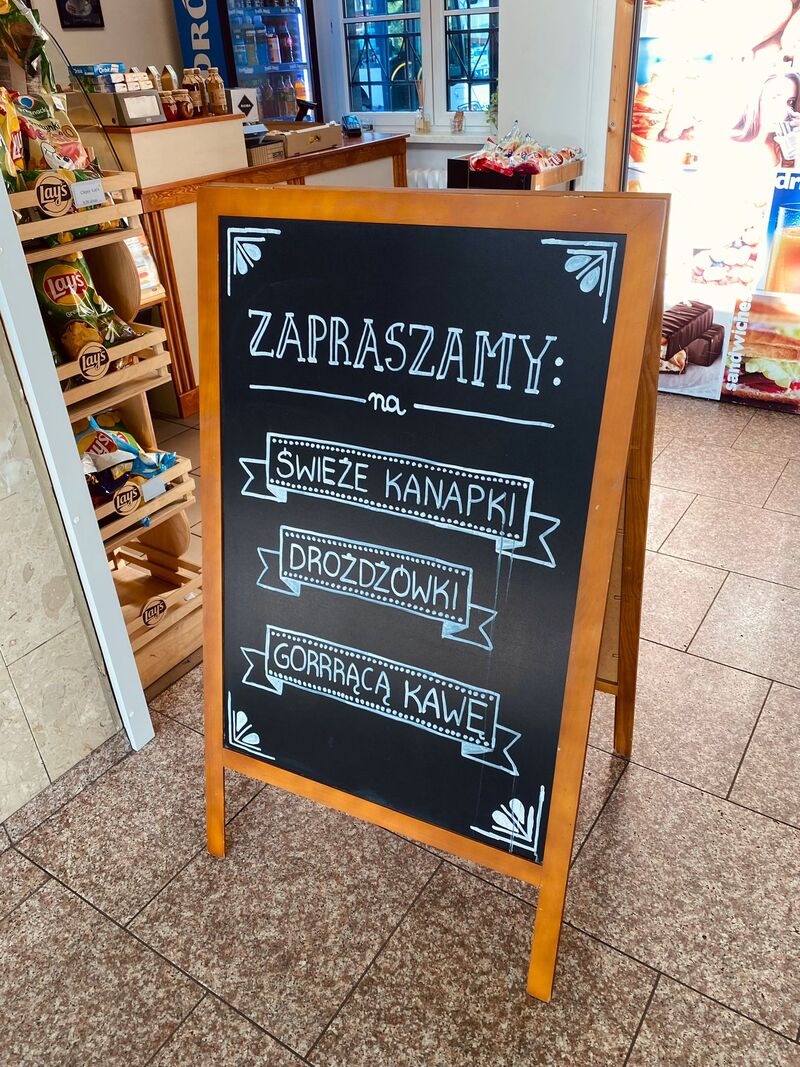 ZAPRASZAMY:
na
ŚWIEŻE KANAPKI
DROŻDŻÓWKI
GORRRĄCĄ KAWĘ
Lay's
Lay's
Lay's
Lay's
Lay's
sandwiche